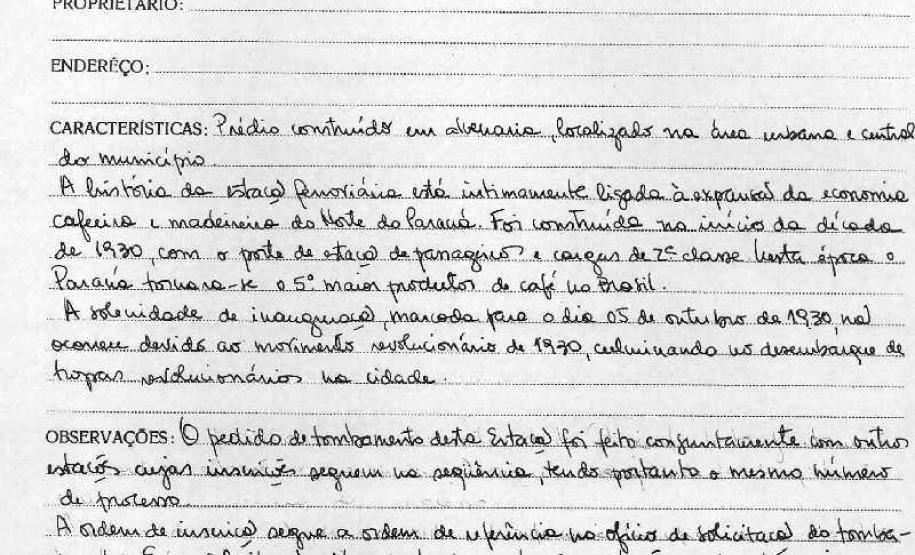 PROPRIETÁRIO:
ENDERÊÇO:
CARACTERÍSTICAS: Prédio construído em alvenaria, localizado na área urbana e central
do município.
A história da estação ferroviária está intimamente ligada à expansão da economia
cafeeira e madeireira do Norte do Paraná. Foi construída no início da década
de 1930, com o porte de estação de passageiros e cargas de 2ª classe. Nesta época o
Paraná tornara-se o 5º maior produtor de café no Brasil.
A solenidade de inauguração, marcada para o dia 05 de outubro de 1930, não
ocorreu devido ao movimento revolucionário de 1930, culminando no desembarque de
tropas revolucionários na cidade.
OBSERVAÇÕES: O pedido de tombamento desta Estação foi feito conjuntamente com outras
estações cujas inscrições seguem na seqüência, tendo portanto o mesmo número
de processo.
A ordem de inscrição segue a ordem de referência no ofício de solicitação do tomba-